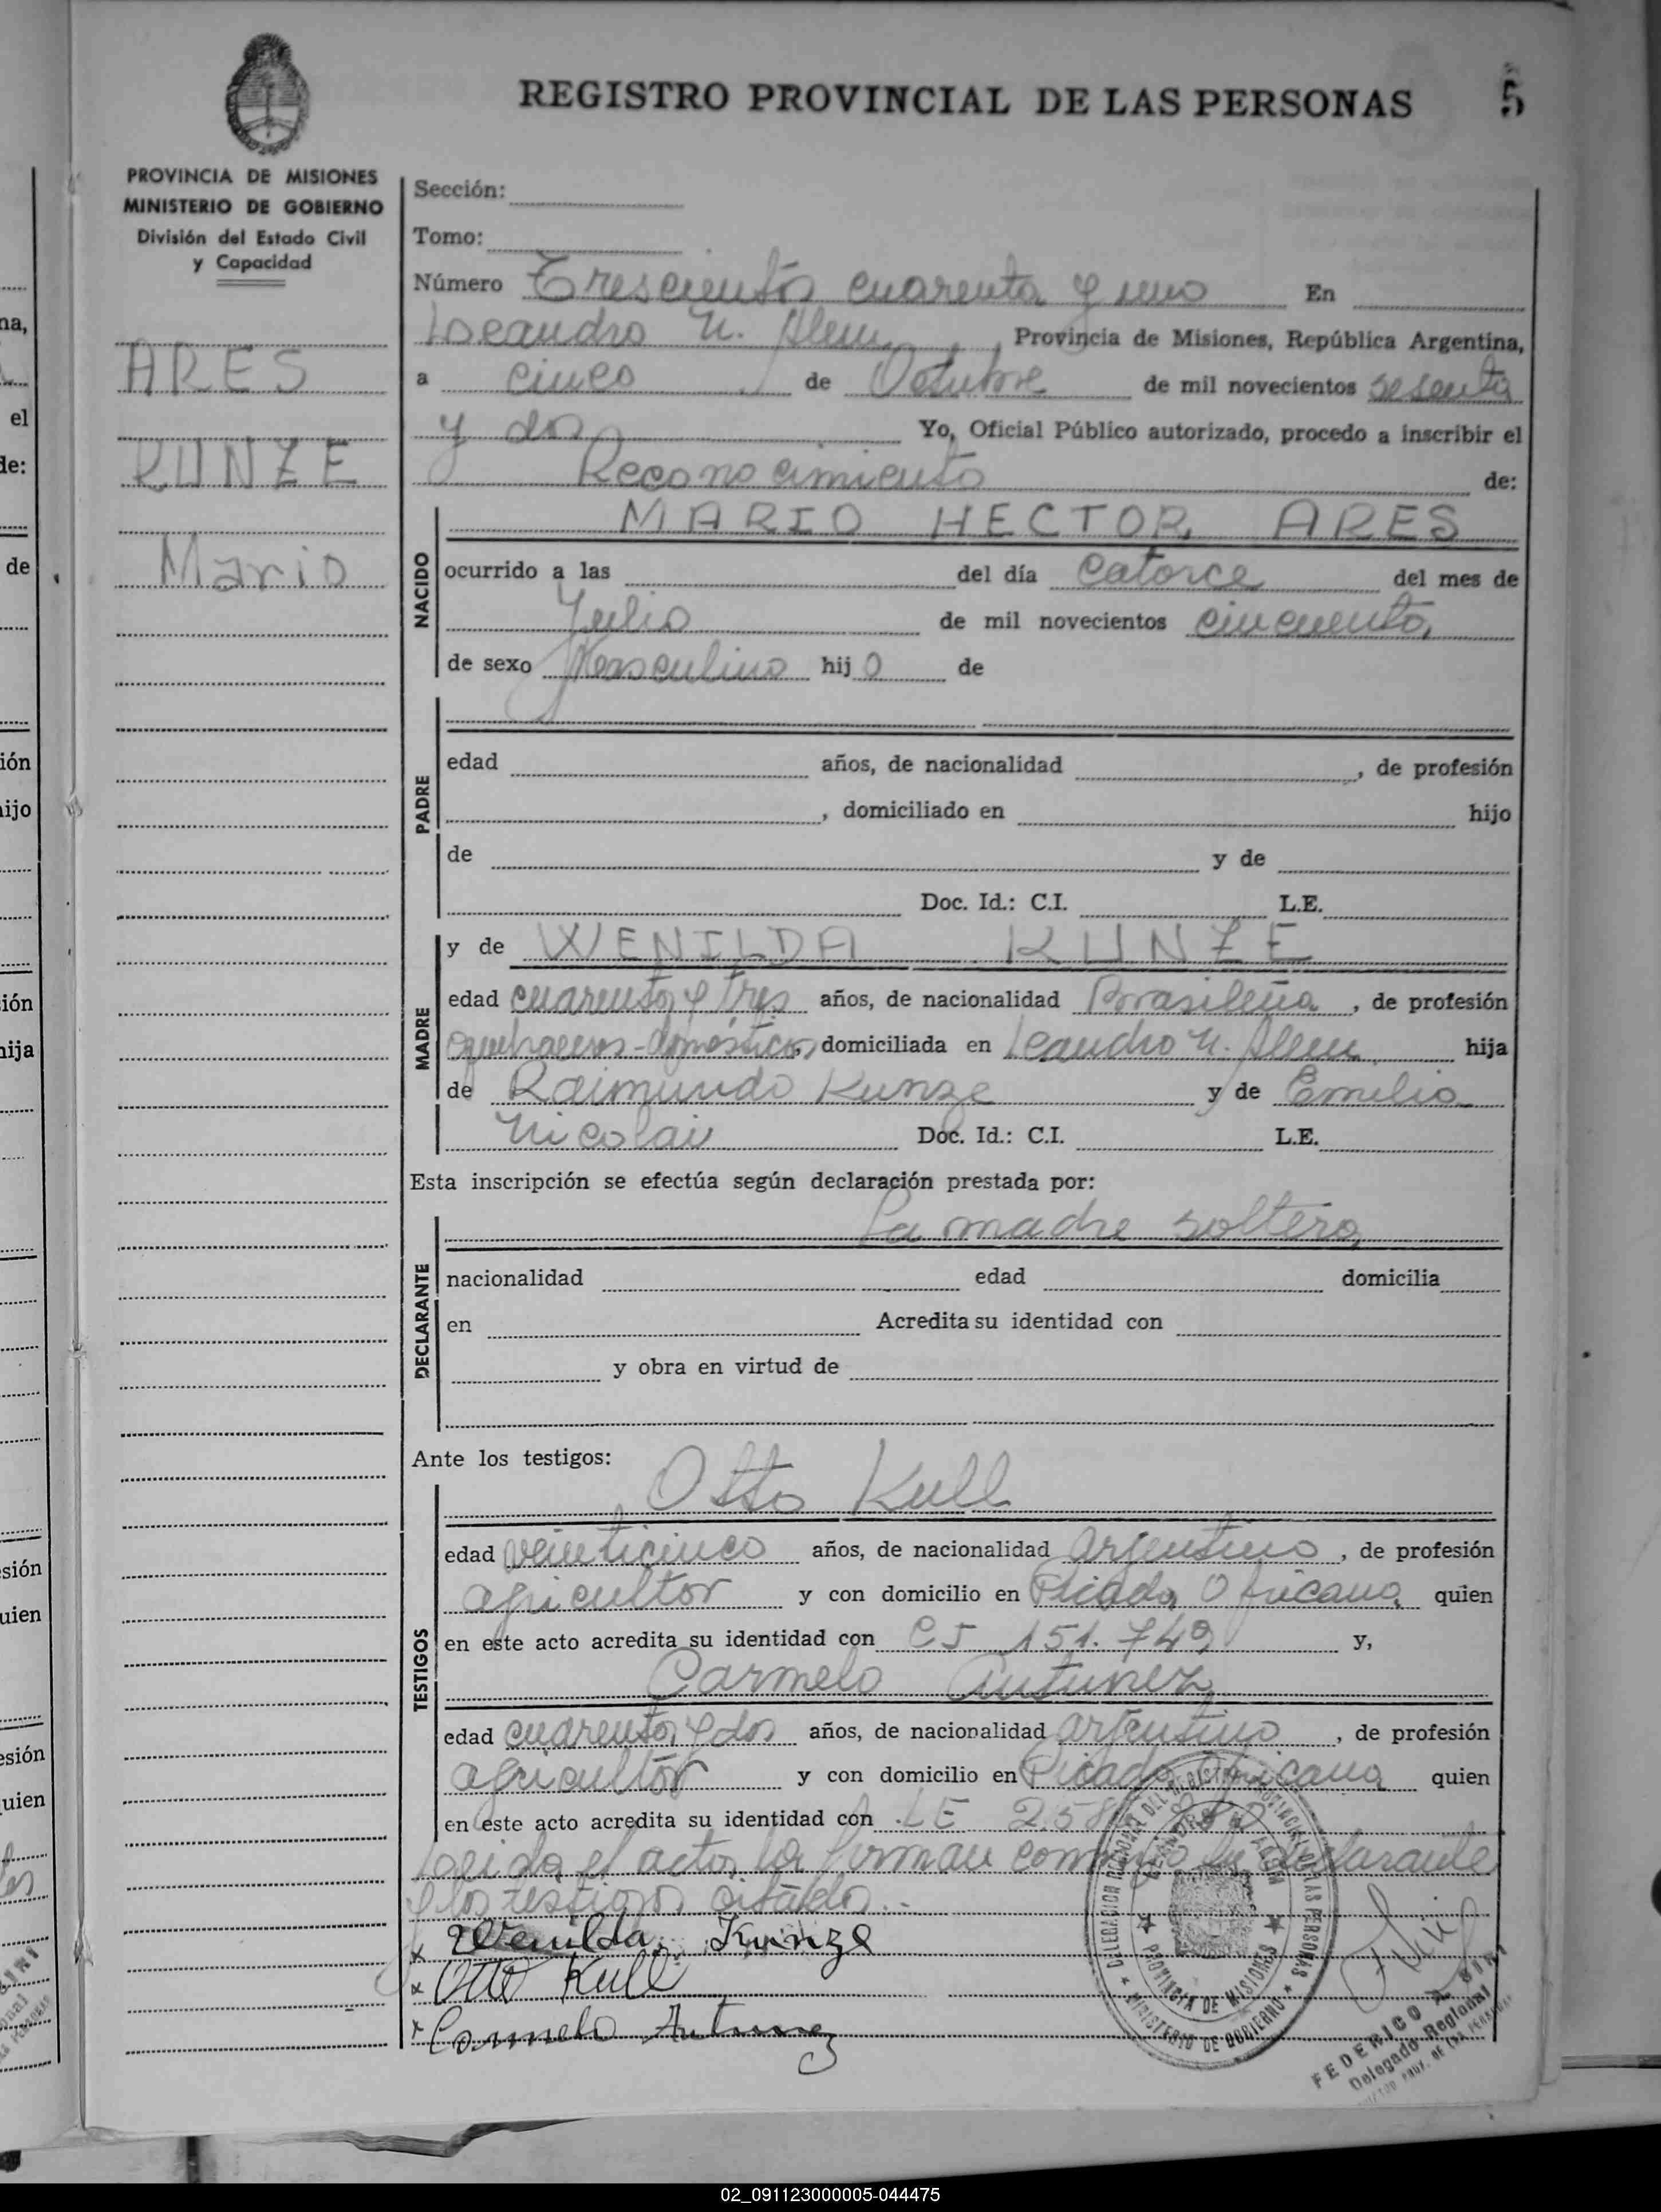 REGISTRO PROVINCIAL DE LAS PERSONAS 5
PROVINCIA DE MISIONES
MINISTERIO DE GOBIERNO
División del Estado Civil
y Capacidad
ARES
KUNZE
Mario
Sección:
Tomo:
Número Trescientos cuarenta y uno En
Leandro N. Alem, Provincia de Misiones, República Argentina,
a cinco de Octubre de mil novecientos sesenta
y dos Yo, Oficial Público autorizado, procedo a inscribir el
Reconocimiento de:
NACIDO
MARIO HECTOR ARES
ocurrido a las del día catorce del mes de
Julio de mil novecientos cincuenta,
de sexo Masculino hijo de
PADRE
edad años, de nacionalidad , de profesión
, domiciliado en hijo
de y de
Doc. Id.: C.I. L.E.
MADRE
y de WENILDA KUNZE
edad cuarenta y tres años, de nacionalidad Brasileña, de profesión
quehaceres-domésticos domiciliada en Leandro N. Alem hija
de Raimundo Kunze y de Emilia
Nicolai Doc. Id.: C.I. L.E.
Esta inscripción se efectúa según declaración prestada por:
DECLARANTE
La madre soltera
nacionalidad edad domicilia
en Acredita su identidad con
y obra en virtud de
Ante los testigos:
TESTIGOS
Otto Kull
edad veinticinco años, de nacionalidad argentino, de profesión
agricultor y con domicilio en Picada quien
en este acto acredita su identidad con CI 151.749 y,
Carmelo Antunez
edad cuarenta y dos años, de nacionalidad argentino, de profesión
agricultor y con domicilio en Picada quien
en este acto acredita su identidad con LE
Leida el acta, la firman conmigo la declarante
y los testigos citados.-
x Wenilda Kunze
x Otto Kull
x Carmelo Antunez
DELEGACION REGIONAL DEL REGISTRO PROVINCIAL DE LAS PERSONAS
LEANDRO N. ALEM
PROVINCIA DE MISIONES
MINISTERIO DE GOBIERNO
FEDERICO A.
Delegado Regional
02_091123000005-044475